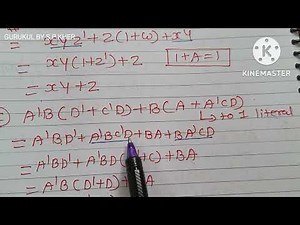 GURUKUL BY S P KHER
= xyz' + z(1+ω) + xy
= xy(1+z') + z
1+A=1
= xy + z
A'B(D'+C'D) + B(A+A'CD)
→ to 1 literal
= A'BD' + A'BC'D + BA + BA'CD
= A'BD' + A'BD( +C) + BA
= A'B(D'+D) + A
KINEMASTER